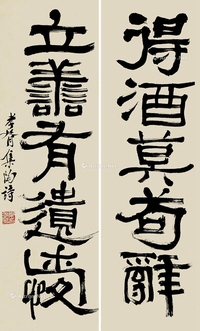 得酒莫苟辭
立善有遺愛
孝胥集陶詩